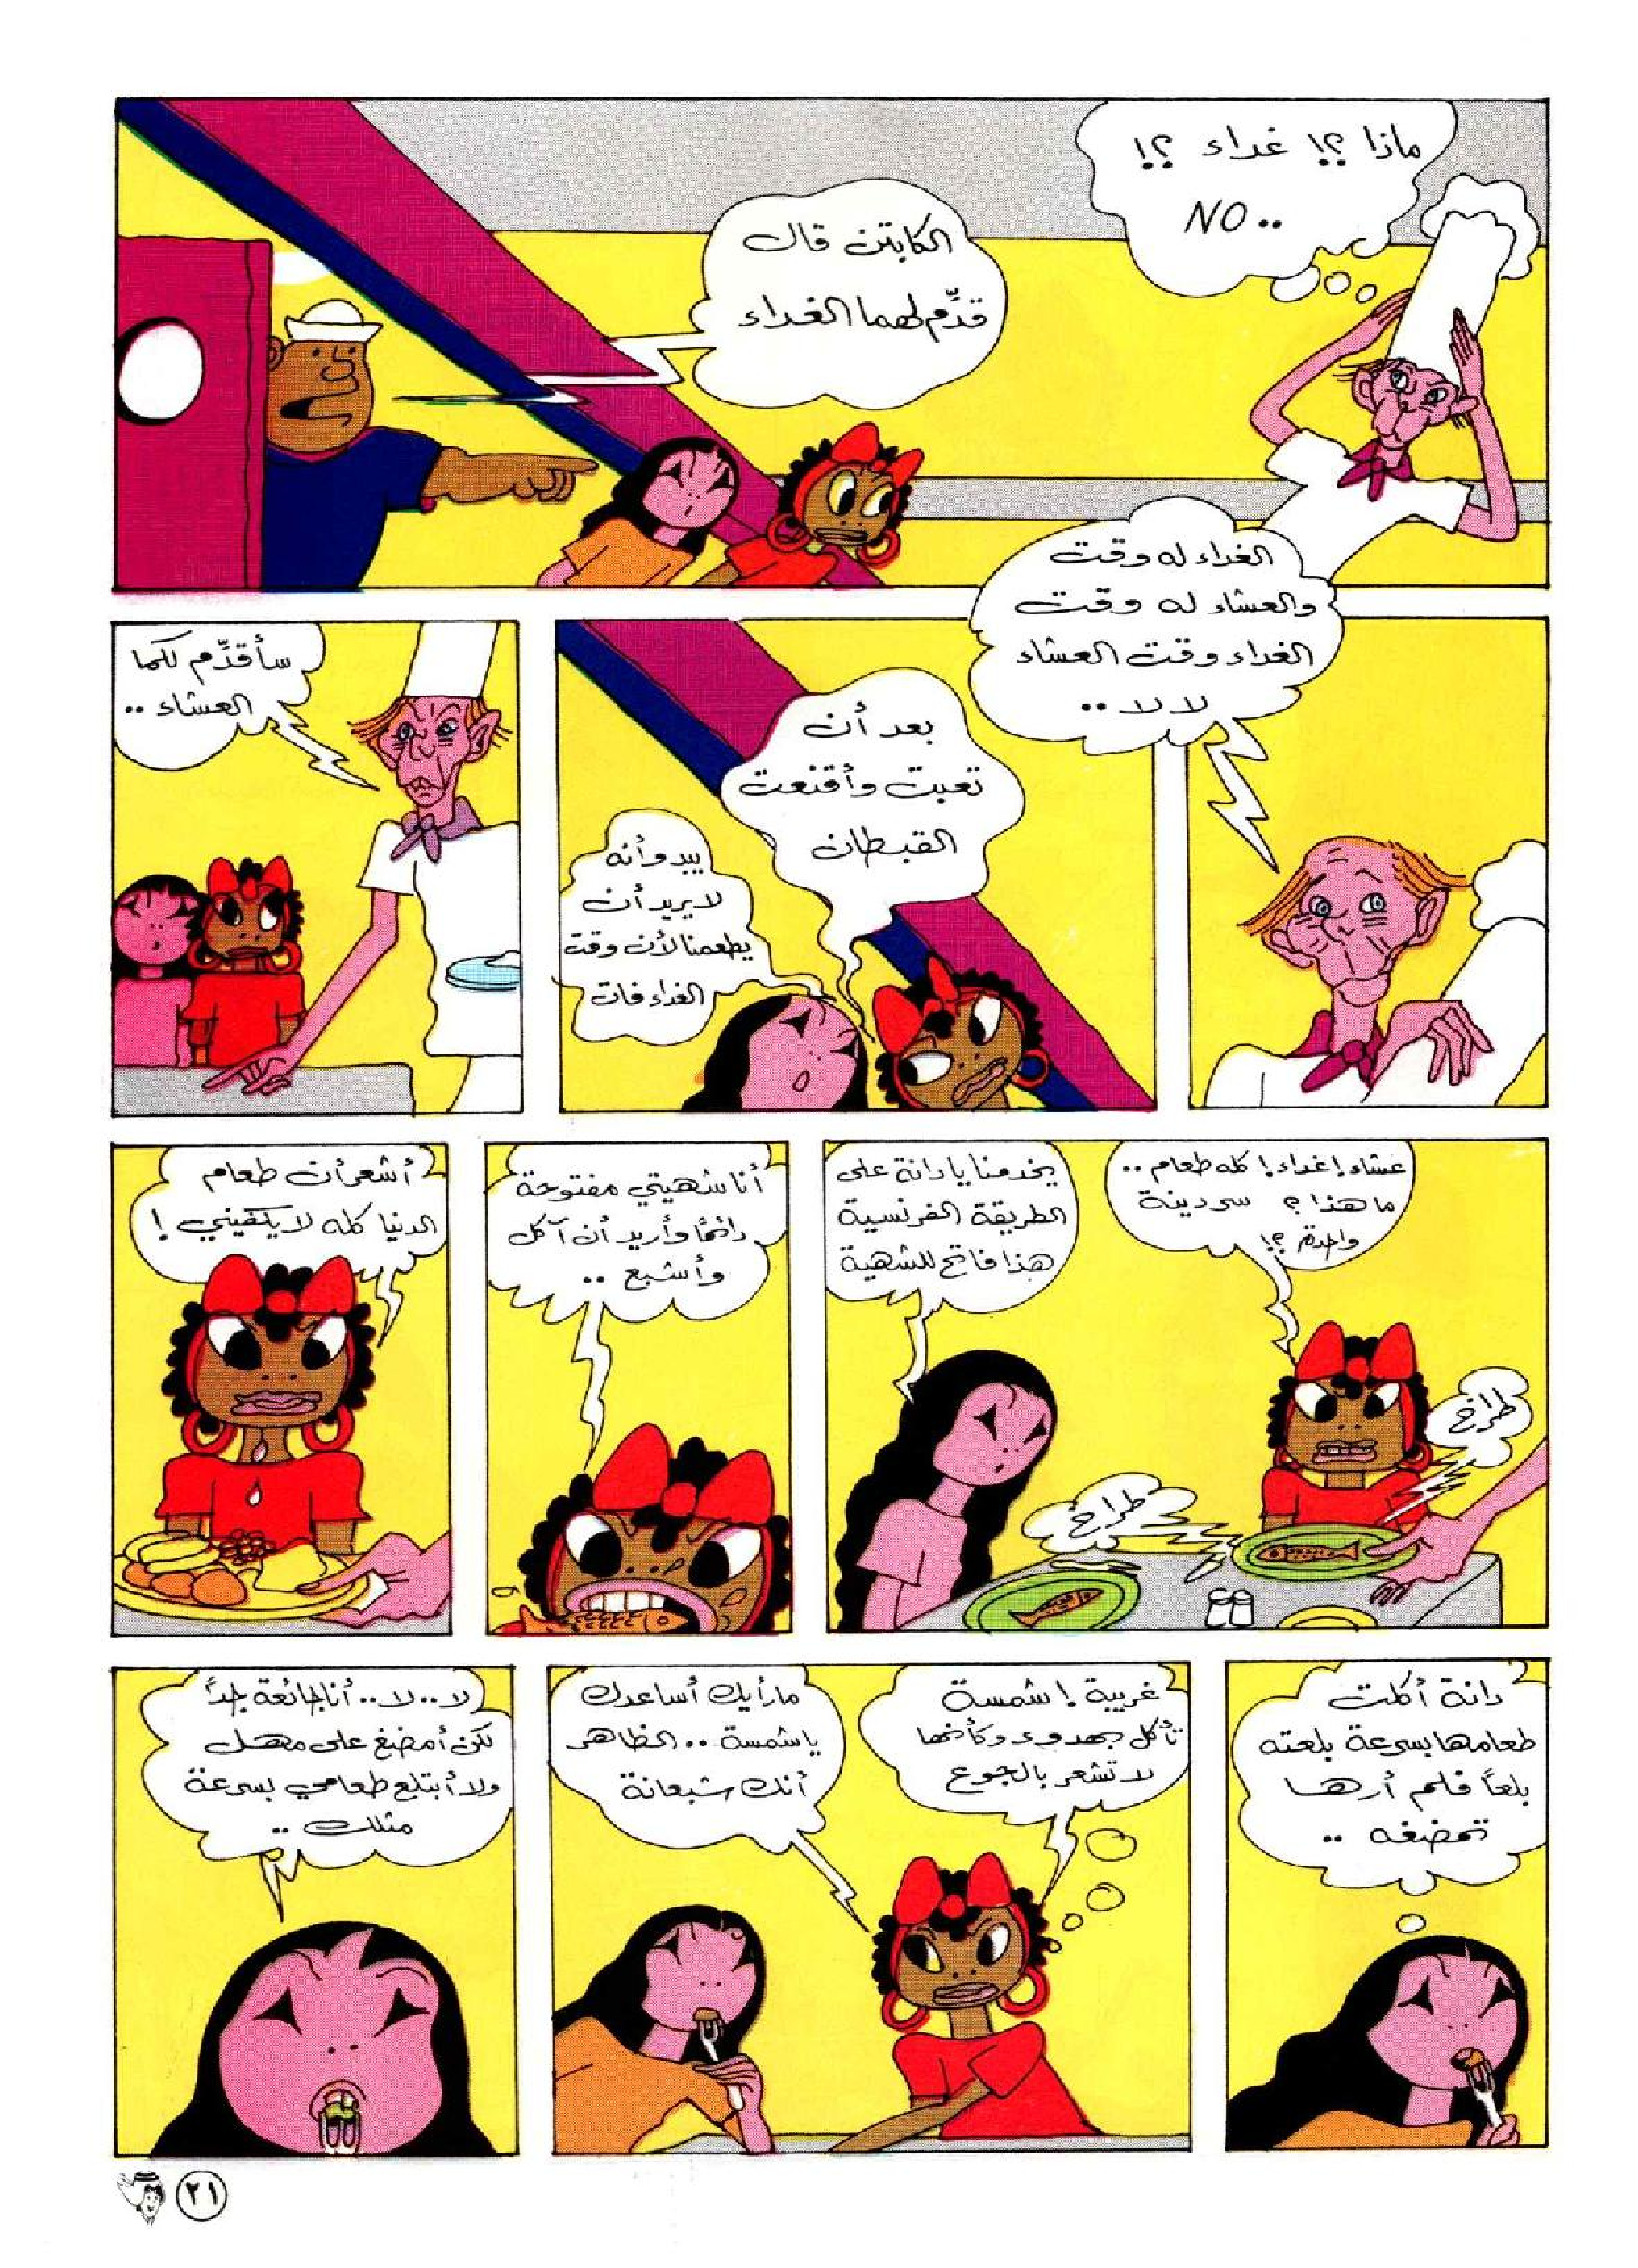 ماذا ؟! غداء ؟!
NO..
الكابتن قال
قدِّم لهما الغداء
الغداء له وقت
والعشاء له وقت
الغداء وقت العشاء
لا لا ..
بعد أن
تعبت وأقنعت
القبطان
يبدو أنه
لا يريد أن
يطعمنا لأن وقت
الغداء فات
سأقدِّم لكما
العشاء ..
عشاء! غداء! كله طعام ..
ما هذا ؟ سردينة
واحدة ؟!
يخدمنا يا دانة على
الطريقة الفرنسية
هذا فاتح للشهية
طراخ
طراخ
أنا شهيتي مفتوحة
دائماً وأريد أن آكل
وأشبع ..
أشعر أن طعام
الدنيا كله لا يكفيني !
دانة أكلت
طعامها بسرعة بلعته
بلعاً فلم أرها
تمضغه ..
غريبة ! شمسة
تأكل بهدوء وكأنها
لا تشعر بالجوع
ما رأيك أساعدك
يا شمسة .. الظاهر
أنك شبعانة
لا .. لا .. أنا جائعة جداً
لكن أمضغ على مهل
ولا أبتلع طعامي بسرعة
مثلك ..
٢١